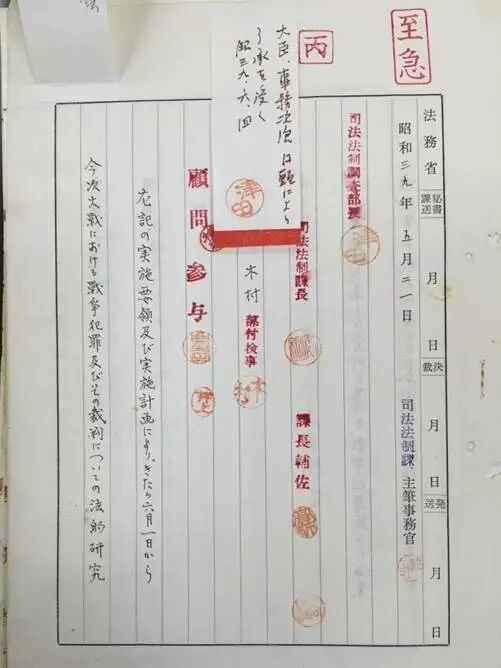 至急
丙
法務省
秘書課送
月
日
決裁
月
日
発送
月
日
昭和三九年五月三一日
司法法制課
主筆事務官
司法法制調査部長
司法法制課長
課長輔佐
大臣、事務次官は
により
了承を受く
昭三九、六、四
津田
木村
部付検事
顧問
参与
左記の実施要領及び実施計画により、きたる六月一日から
今次大戦における戦争犯罪及びその裁判についての法的研究